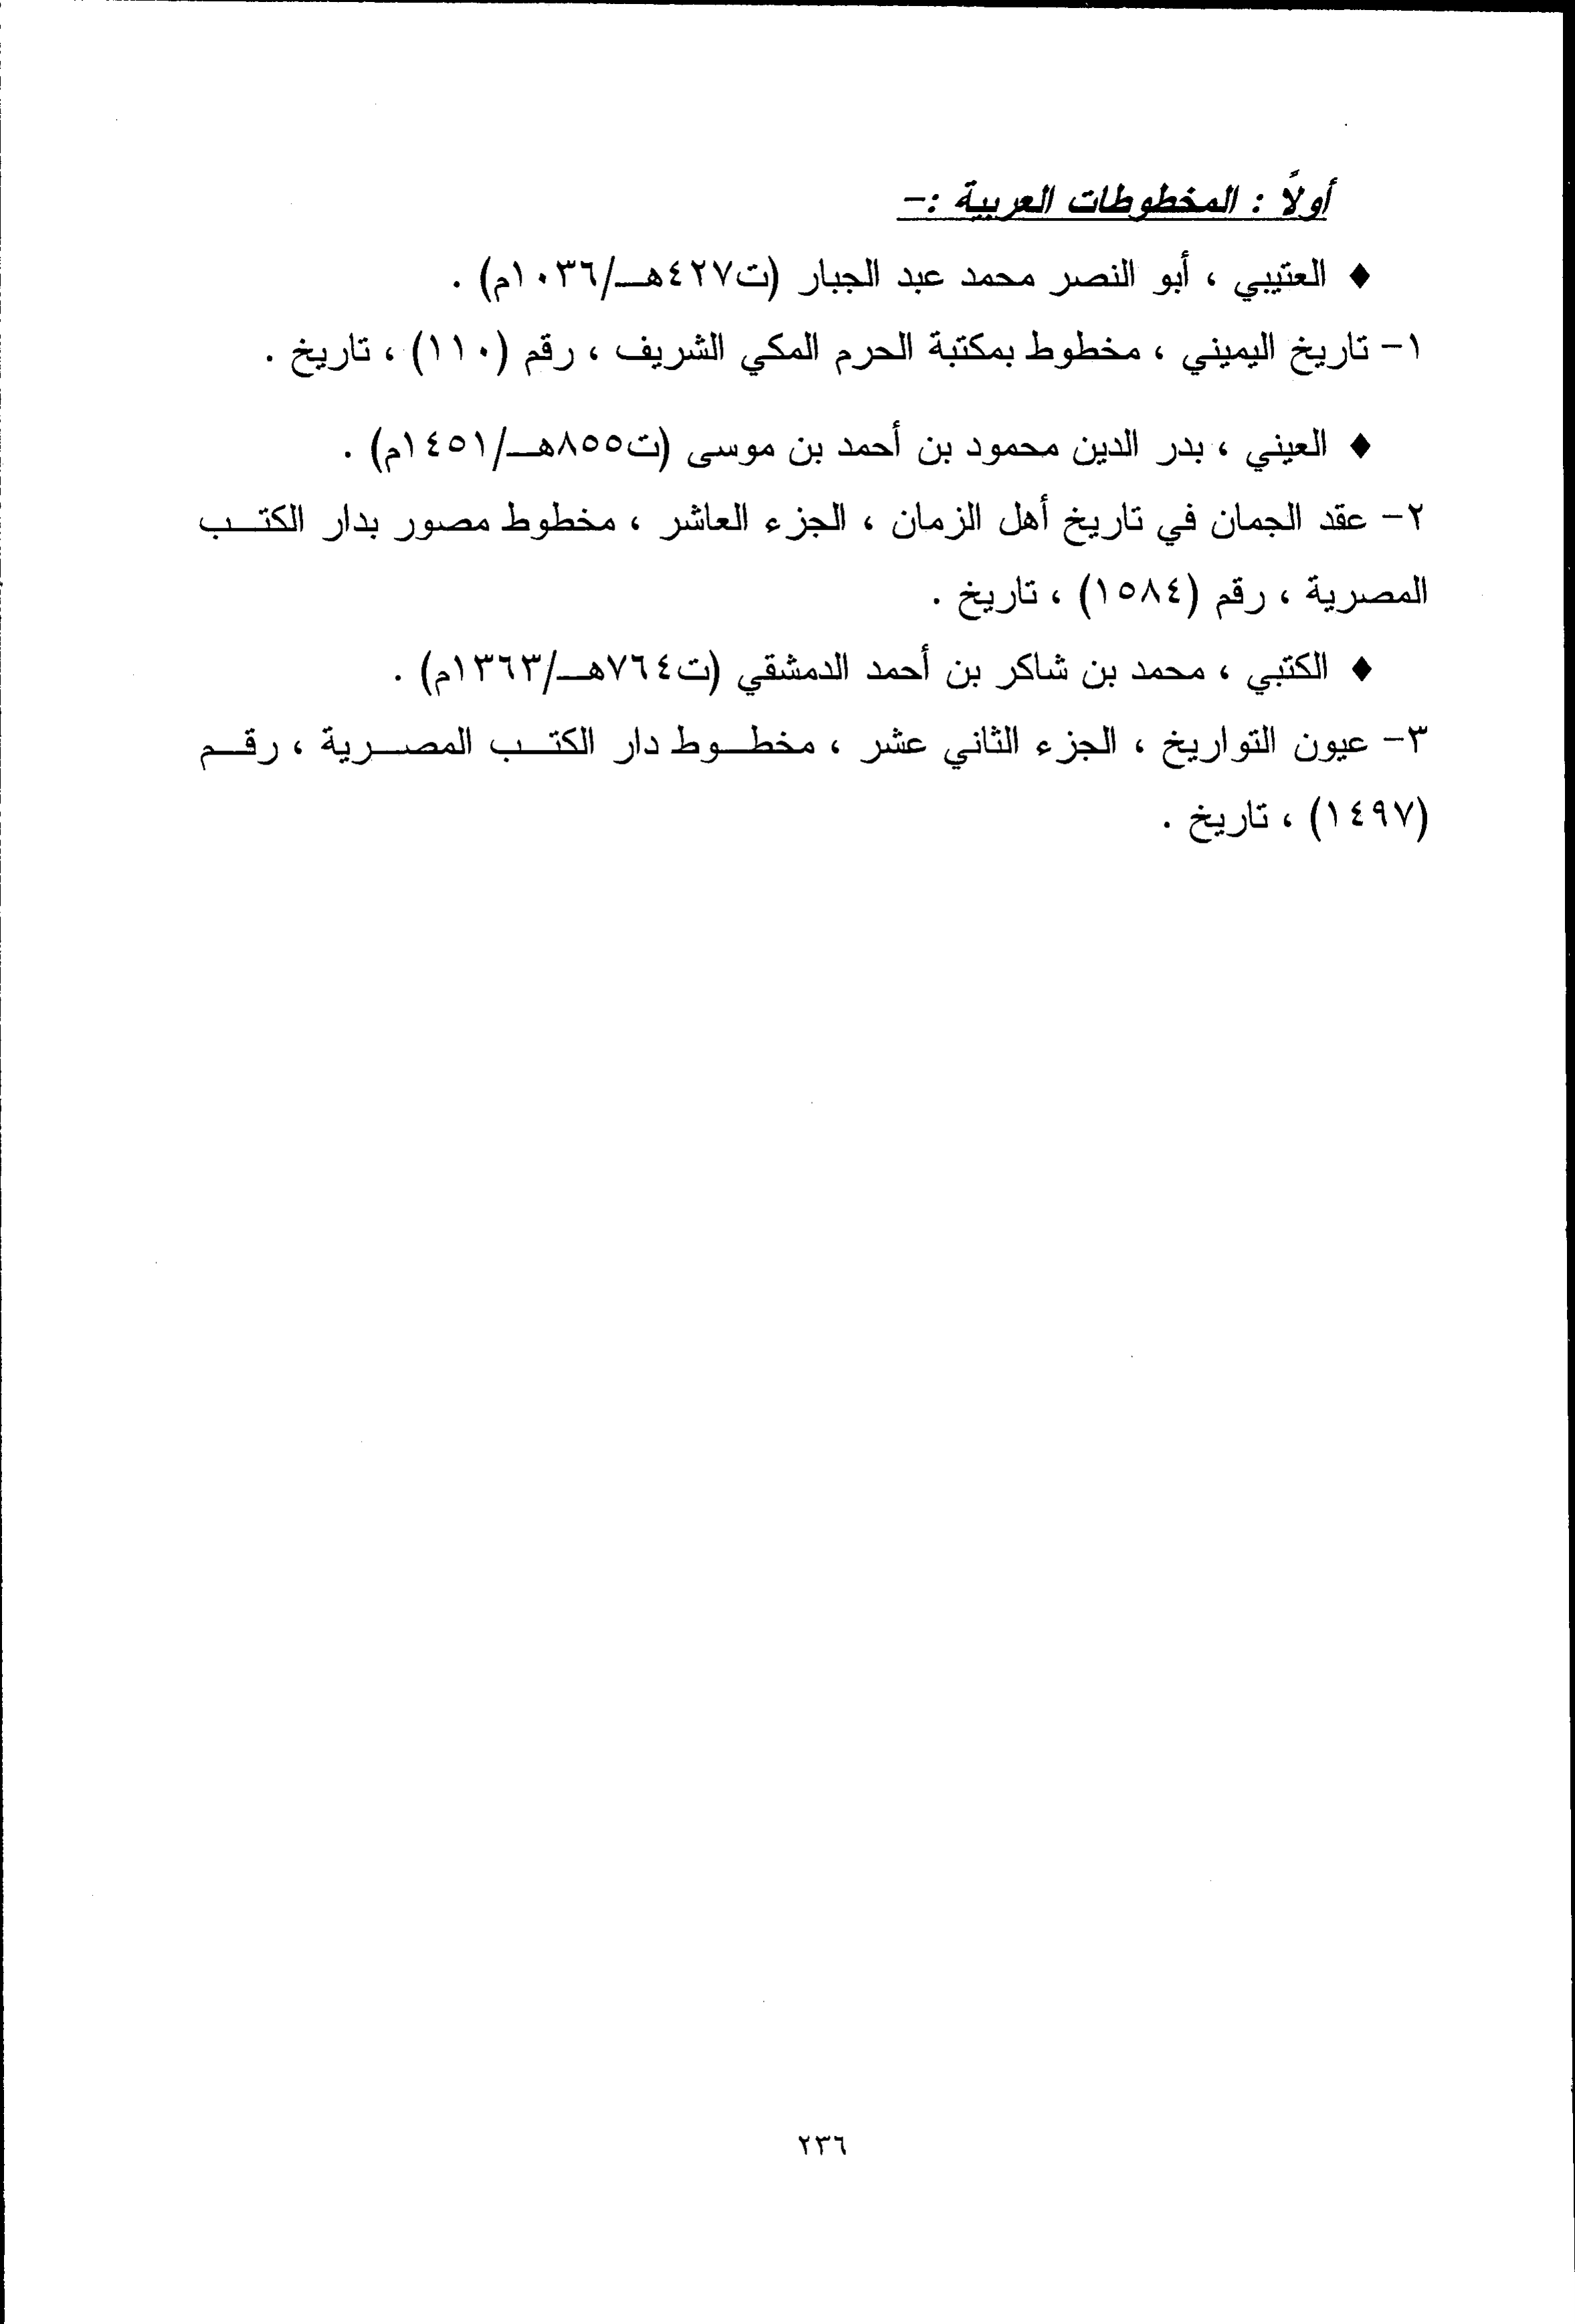 أولاً : المخطوطات العربية :-
♦ العتيبي ، أبو النصر محمد عبد الجبار (ت٤٢٧هـ/١٠٣٦م) .
١- تاريخ اليميني ، مخطوط بمكتبة الحرم المكي الشريف ، رقم (١١٠) ، تاريخ .
♦ العيني ، بدر الدين محمود بن أحمد بن موسى (ت٨٥٥هـ/١٤٥١م) .
٢- عقد الجمان في تاريخ أهل الزمان ، الجزء العاشر ، مخطوط مصور بدار الكتب
المصرية ، رقم (١٥٨٤) ، تاريخ .
♦ الكتبي ، محمد بن شاكر بن أحمد الدمشقي (ت٧٦٤هـ/١٣٦٣م) .
٣- عيون التواريخ ، الجزء الثاني عشر ، مخطوط دار الكتب المصرية ، رقم
(١٤٩٧) ، تاريخ .
٢٣٦